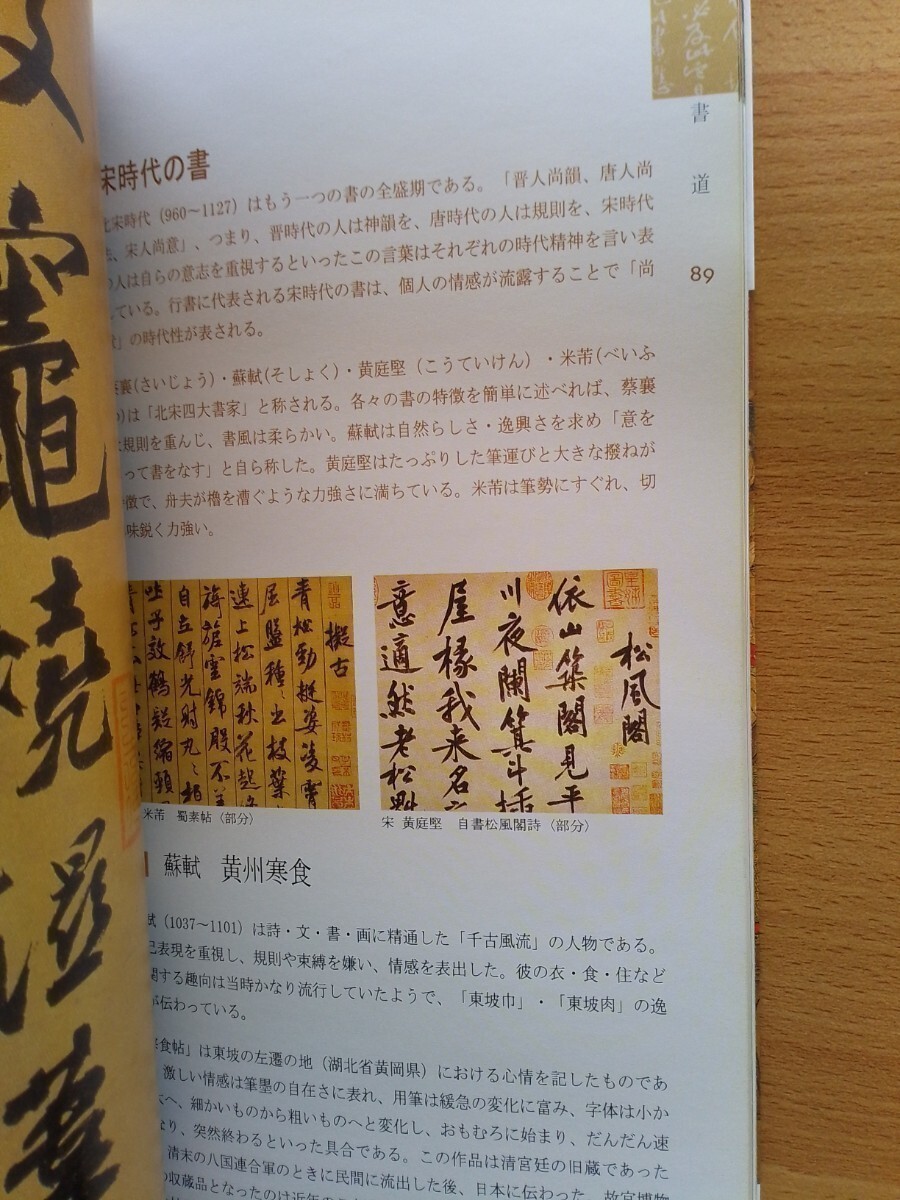 書道
89
宋時代の書
北宋時代（960～1127）はもう一つの書の全盛期である。「晋人尚韻、唐人尚
、宋人尚意」、つまり、晋時代の人は神韻を、唐時代の人は規則を、宋時代
の人は自らの意志を重視するといったこの言葉はそれぞれの時代精神を言い表
している。行書に代表される宋時代の書は、個人の情感が流露することで「尚
」の時代性が表される。
蔡襄(さいじょう)・蘇軾(そしょく)・黄庭堅（こうていけん）・米芾(べいふ
)は「北宋四大書家」と称される。各々の書の特徴を簡単に述べれば、蔡襄
は規則を重んじ、書風は柔らかい。蘇軾は自然らしさ・逸興さを求め「意を
って書をなす」と自ら称した。黄庭堅はたっぷりした筆運びと大きな撥ねが
特徴で、舟夫が櫓を漕ぐような力強さに満ちている。米芾は筆勢にすぐれ、切
味鋭く力強い。
松風閣
依山築閣見平
川夜闌箕斗插
屋椽我来名
意適然老松
擬古
青松勁挺姿凌霄
屈盤種ヽ出枝葉
連上松端秋花起
旖旎雲錦殷不
自立舒光射丸ヽ
吐子效鶴疑縮頸
米芾　蜀素帖（部分）
宋 黄庭堅　自書松風閣詩（部分）
蘇軾　黄州寒食
軾（1037～1101）は詩・文・書・画に精通した「千古風流」の人物である。
己表現を重視し、規則や束縛を嫌い、情感を表出した。彼の衣・食・住など
関する趣向は当時かなり流行していたようで、「東坡巾」・「東坡肉」の逸
が伝わっている。
寒食帖」は東坡の左遷の地（湖北省黄岡県）における心情を記したものであ
激しい情感は筆墨の自在さに表れ、用筆は緩急の変化に富み、字体は小か
へ、細かいものから粗いものへと変化し、おもむろに始まり、だんだん速
なり、突然終わるといった具合である。この作品は清宮廷の旧蔵であった
清末の八国連合軍のときに民間に流出した後、日本に伝わった。故宮博物
の収蔵品となったのは近年の
竈燒
濕葦